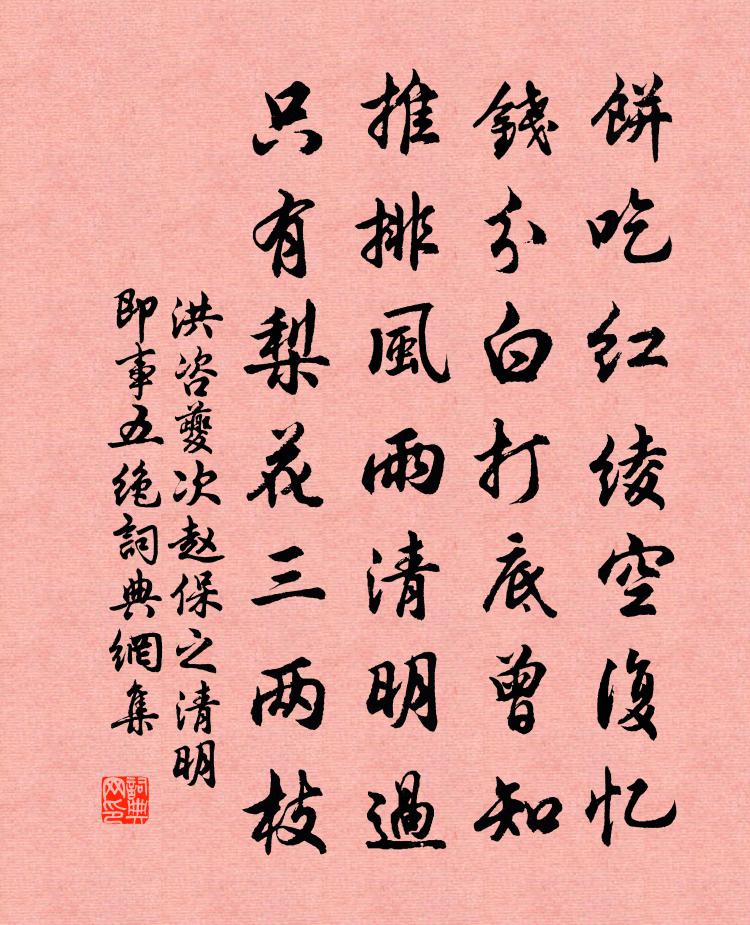 餅吃红绫空復忆
錢分白打底曾知
推排風雨清明過
只有梨花三两枝
洪咨夔次赵保之清明
即事五绝詞典網集
詞典网印